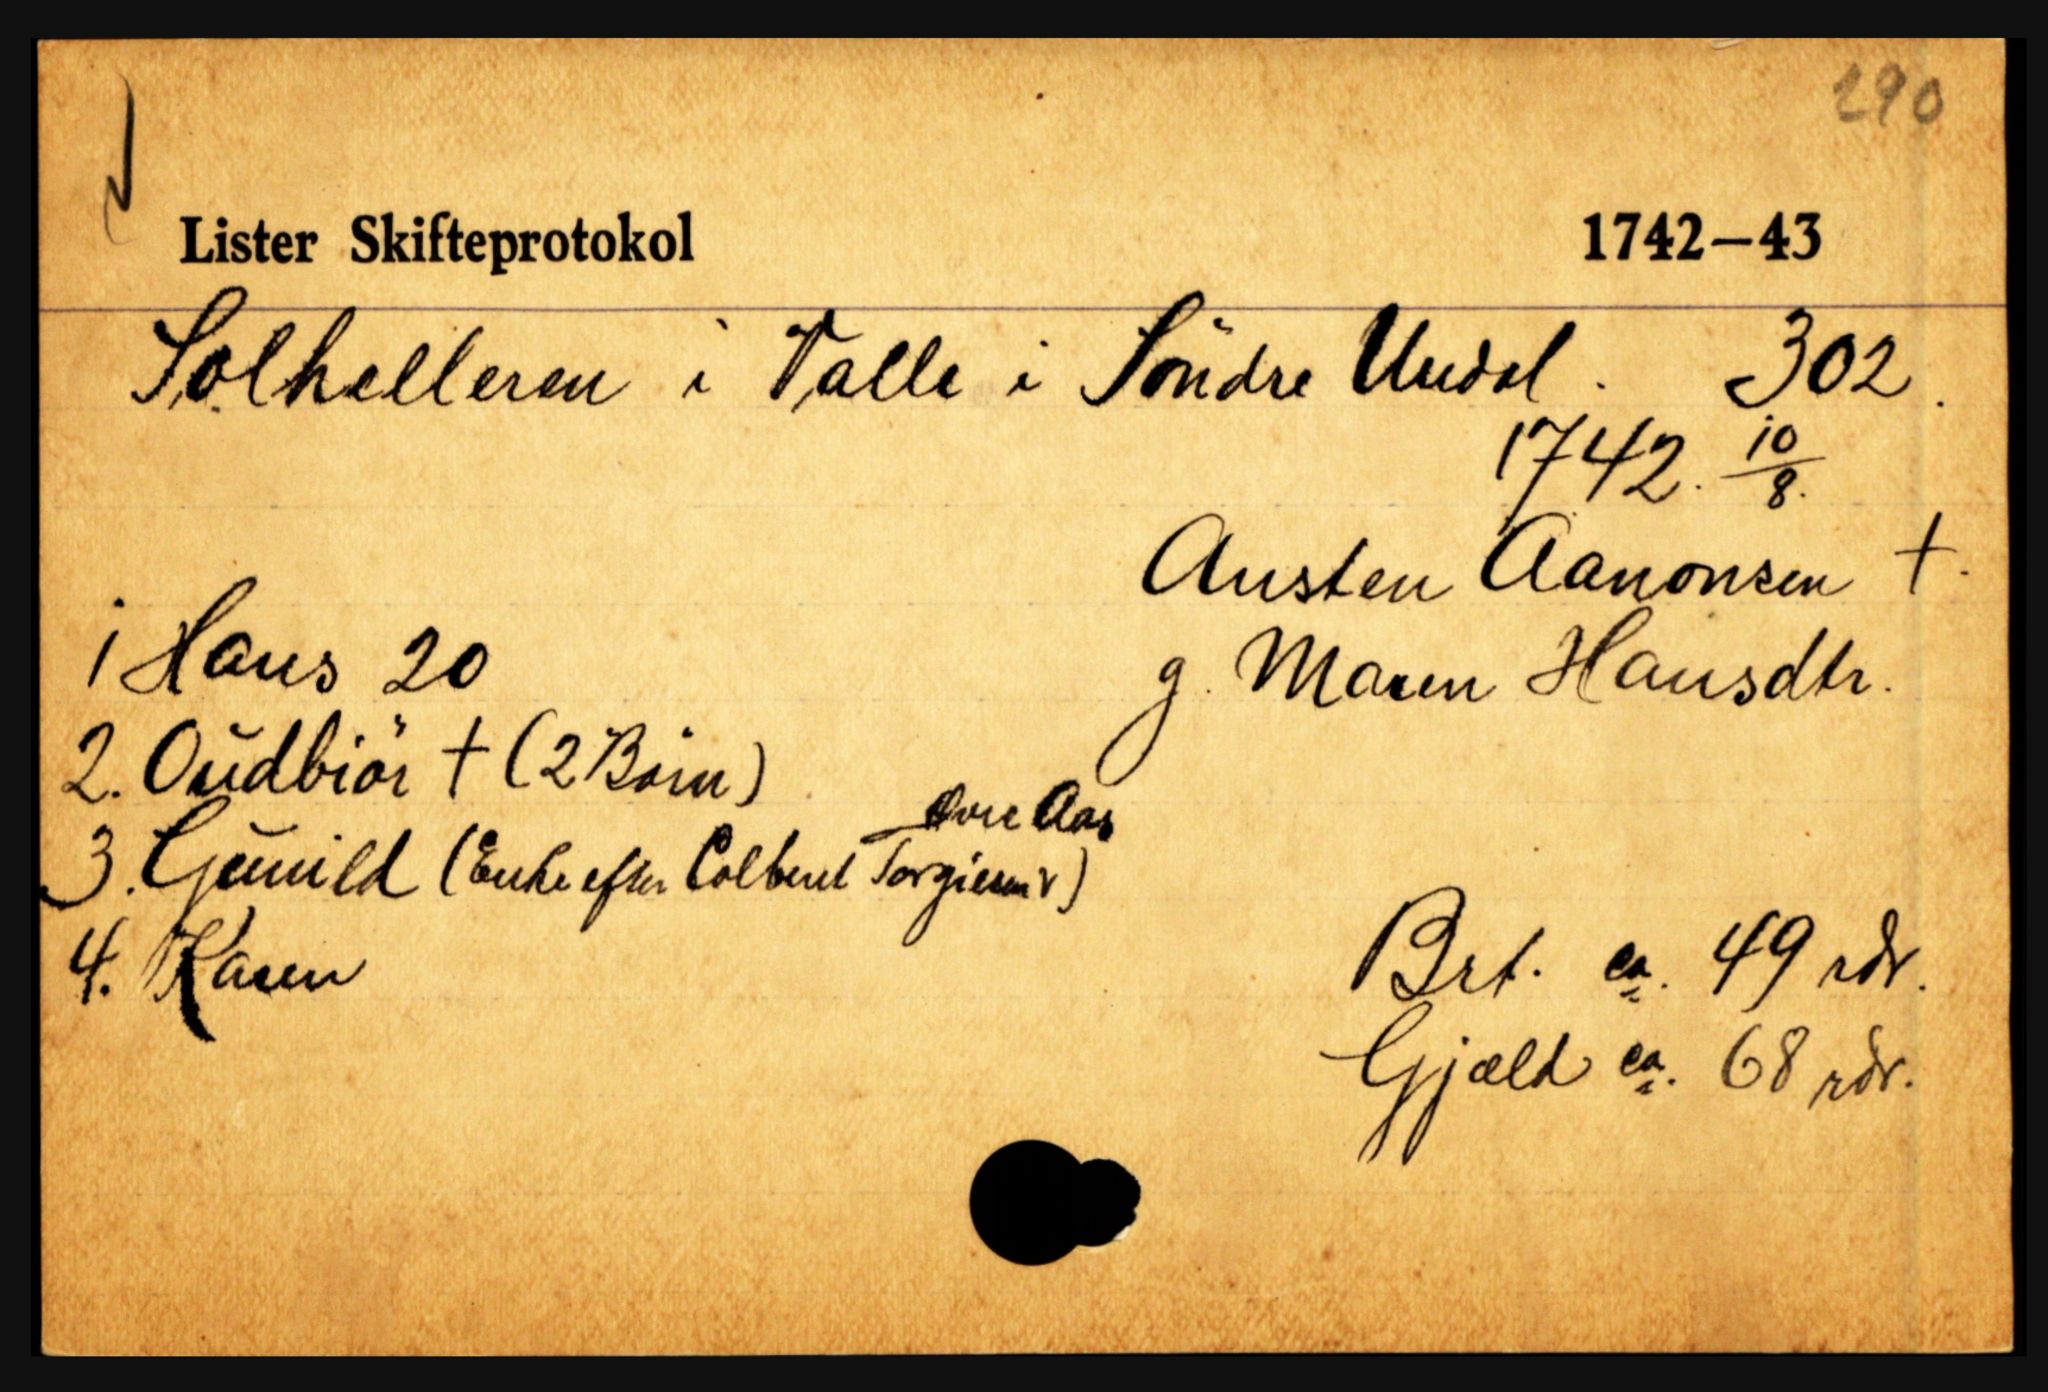 290
Lister Skifteprotokol 1742–43
Solhelleren i Valle i Söndre Undal. 302.
1742. 10/8.
Austen Aanonsen †.
1 Hans 20 g. Maren Hansdtr.
2. Oudbiör † (2 Börn)
Øvre Aas
3. Gunild (Enke efter Colbent Torgiesen)
4. Karen
Brt. ca. 49 rdr.
Gjæld ca. 68 rdr.